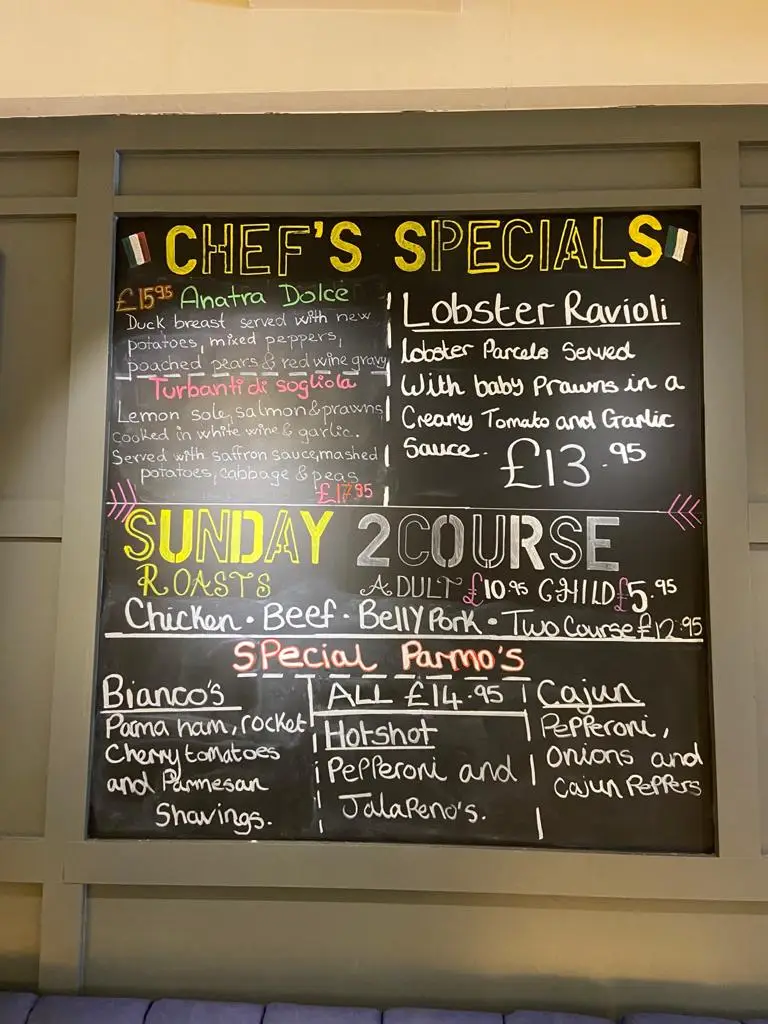 CHEF'S SPECIALS
£15.95 Anatra Dolce
Duck breast served with new
potatoes, mixed peppers,
poached pears & red wine gravy
Turbanti di sogliola
Lemon sole, salmon & prawns
cooked in white wine & garlic.
Served with saffron sauce, mashed
potatoes, cabbage & peas
£17.95
Lobster Ravioli
Lobster Parcels Served
With baby Prawns in a
Creamy Tomato and Garlic
Sauce. £13.95
SUNDAY 2 COURSE
ROASTS ADULT £10.95 CHILD £5.95
Chicken · Beef · Belly Pork · Two Course £12.95
Special Parmo's
Bianco's
Parma ham, rocket
Cherry tomatoes
and Parmesan
Shavings.
ALL £14.95
Hotshot
Pepperoni and
Jalapeno's.
Cajun
Pepperoni,
Onions and
Cajun Peppers